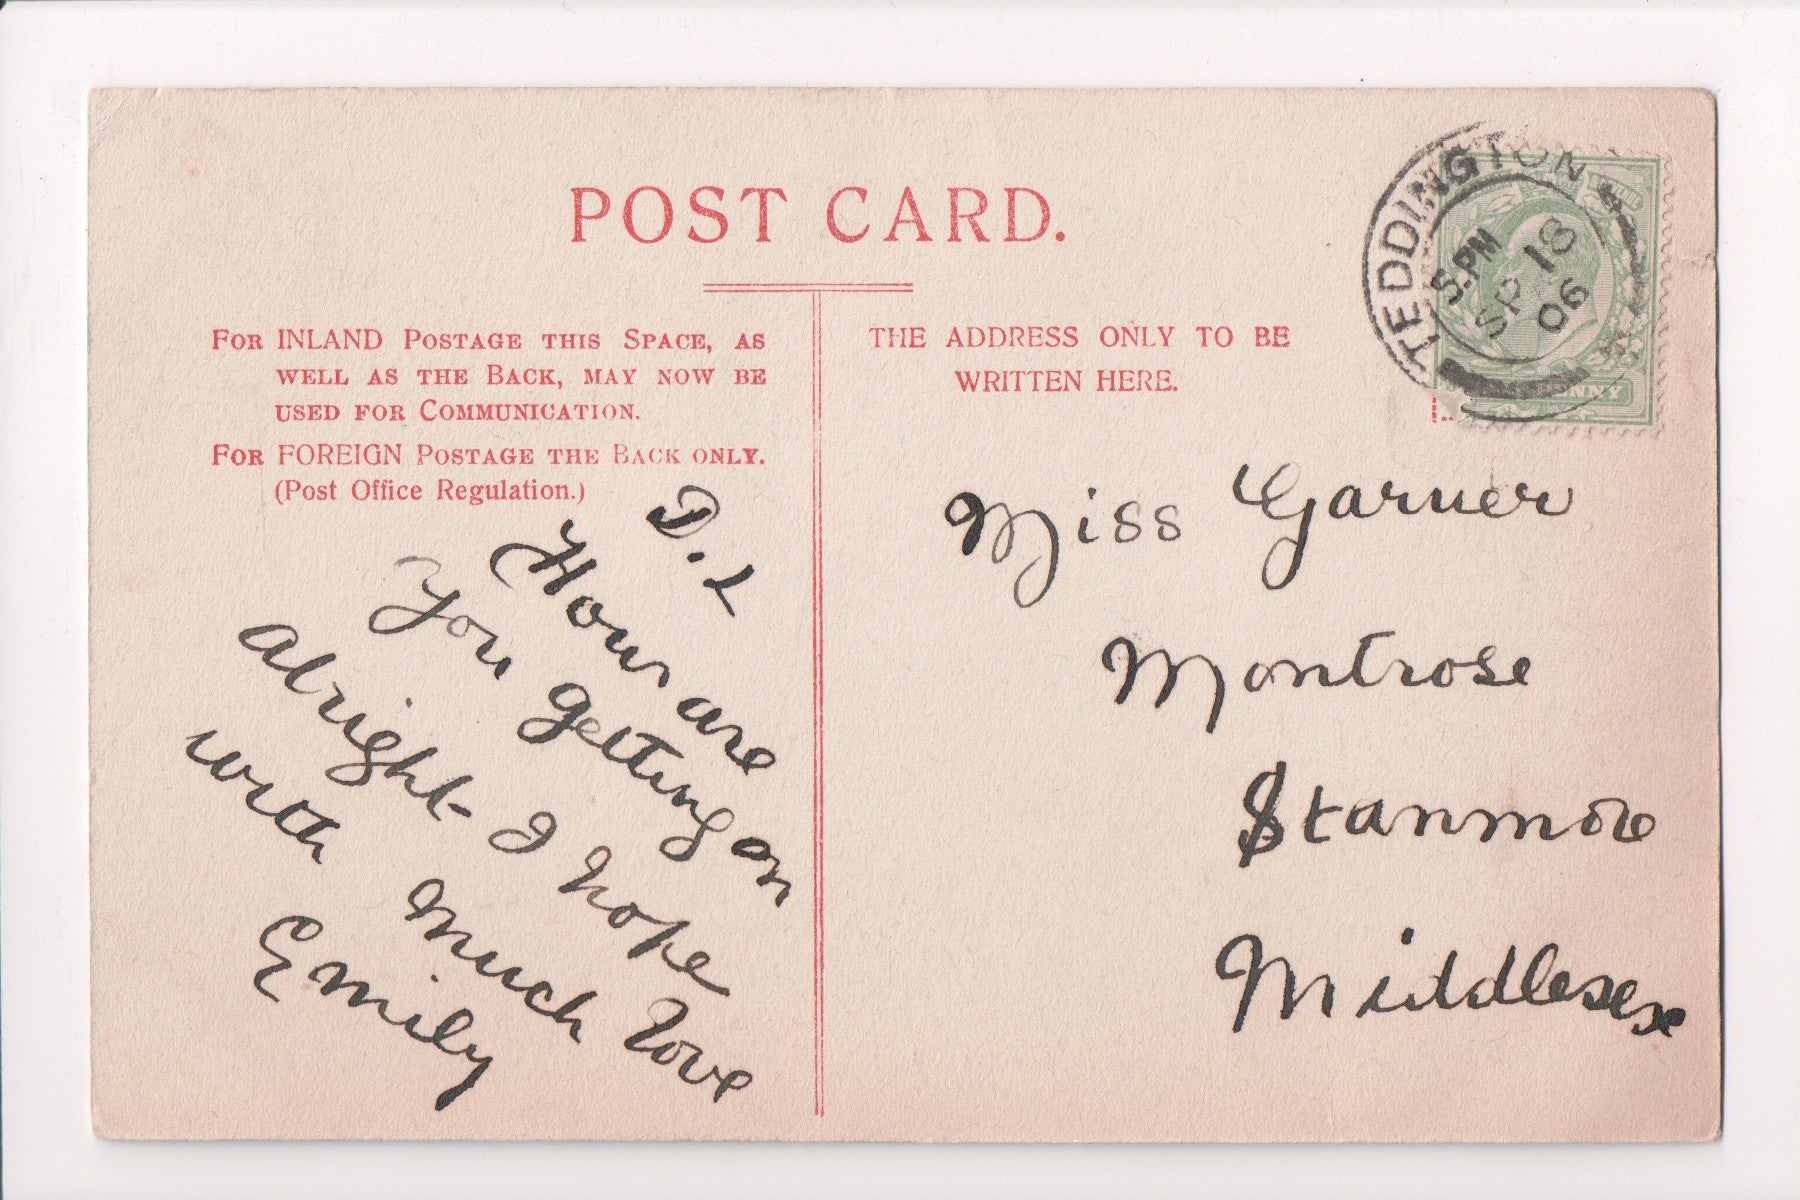 POST CARD.
FOR INLAND POSTAGE THIS SPACE, AS
WELL AS THE BACK, MAY NOW BE
USED FOR COMMUNICATION.
FOR FOREIGN POSTAGE THE BACK ONLY.
(Post Office Regulation.)
THE ADDRESS ONLY TO BE
WRITTEN HERE.
TEDDINGTON
5.PM
SP 18
06
NNY
D. L
How are
you getting on
alright I hope
with much love
Emily
Miss Garner
Montrose
Stanmore
Middlesex